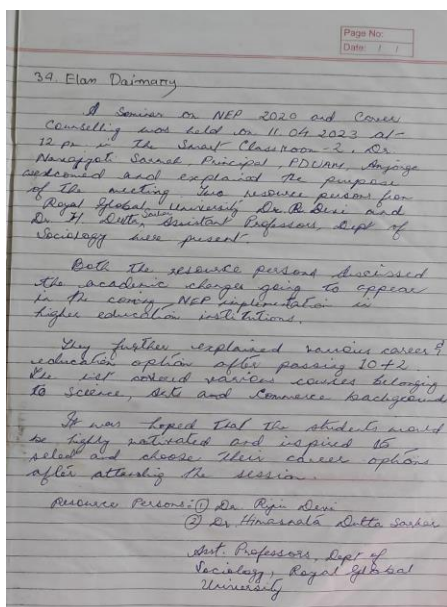 Page No:
Date: / /
34. Elan Daimary
A Seminar on NEP 2020 and Career
Counselling was held on 11.04.2023 at
12 pm in the Smart Classroom-2. Dr.
Principal, PDUAM,
welcomed and explained the purpose
of the meeting. Two resource persons from
Royal Global University Dr. R. Devi and
Dr. H Dutta Sarkar, Assistant Professors, Dept of
Sociology were present.
Both the resource persons discussed
the academic changes going to appear
in the coming NEP implementation in
higher education institutions.
They further explained various career &
education option after passing 10+2
The list covered various courses belonging
to Science, Arts and Commerce backgrounds
It was hoped that the students would
be highly motivated and inspired to
select and choose their career options
after attending the session.
Resource Persons:- ① Dr Devi
② Dr Dutta Sarkar
Asst. Professors, Dept of
Sociology, Royal Global
University